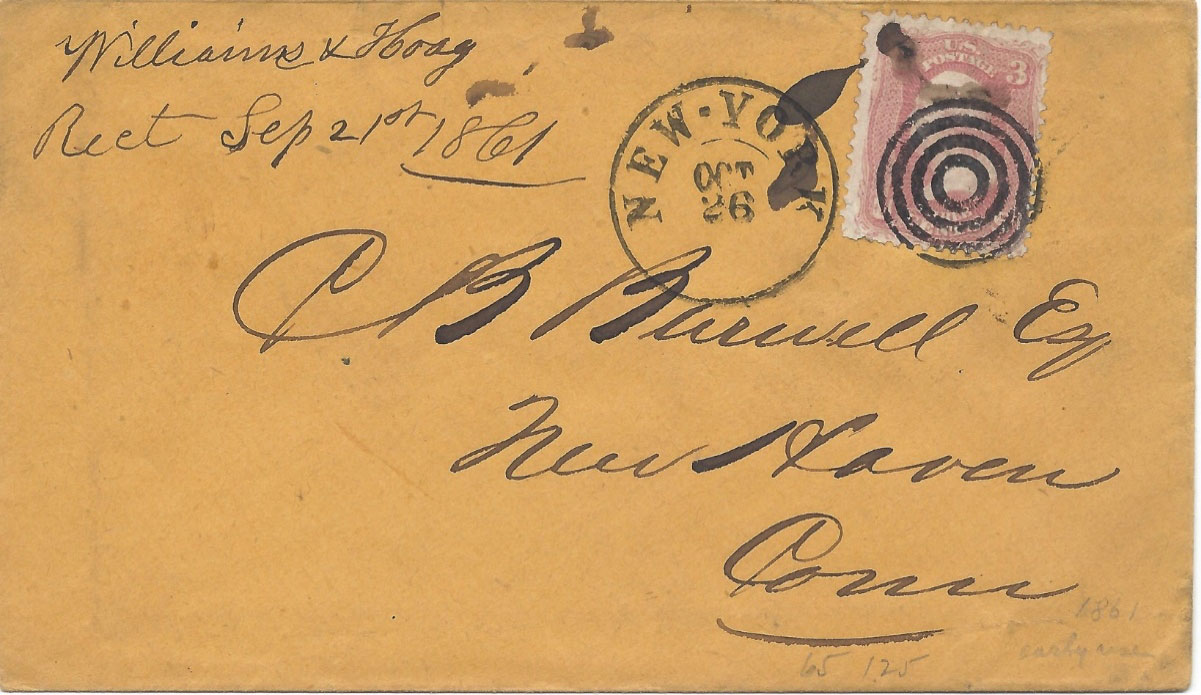 Williams & Hoag
Rect Sep 21st 1861
U.S. POSTAGE 3
NEW-YORK
OCT
26
C B Burwell Esq
New Haven
Conn
1861
early use
65 125